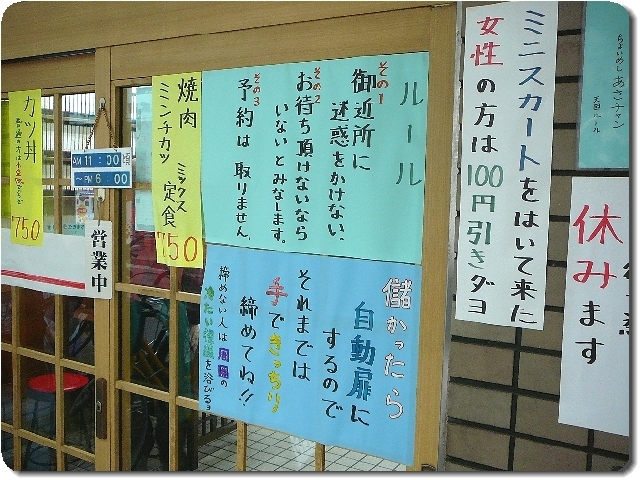 ちょいめし あさチャン
天国ルール
ミニスカートをはいて来た
女性の方は100円引きダヨ
休みます
ルール
その1
御近所に
迷惑をかけない、
その2
お待ち頂けないなら
いないとみなします。
その3
予約は取りません、
儲かったら
自動扉に
するので
それまでは
手できっちり
締めてね!!
締めない人は周囲の
冷たい視線を浴びるョ
焼肉
ミンチカツ
ミックス
定食
750
営業中
AM 11:00頃
~PM 6:00
カツ丼
750